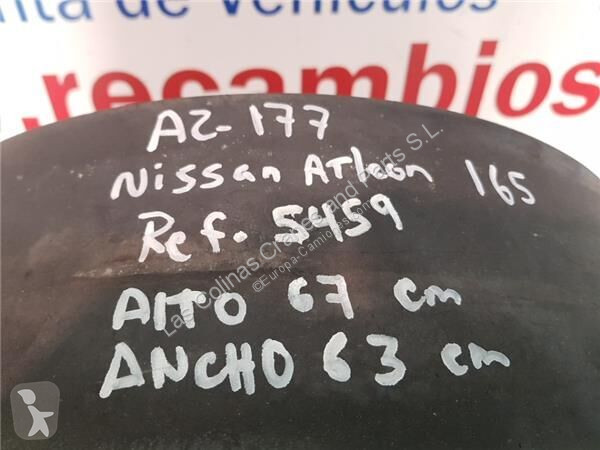 ta de vehículos
.recambios
AZ-177
Nissan Atleon 165
Ref. 5459
Alto 67 cm
ANCHO 63 cm
Las Colinas Cranes and Parts S.L.
©Europa-Camiones.com